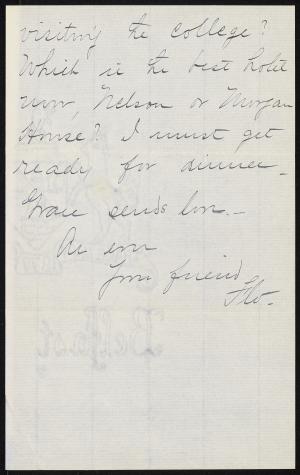 visiting the college?
Which is the best hotel
now, Nelson or Morgan
House? I must get
ready for dinner –
Grace sends love. –
As ever
Your friend
Flo.
Belfast